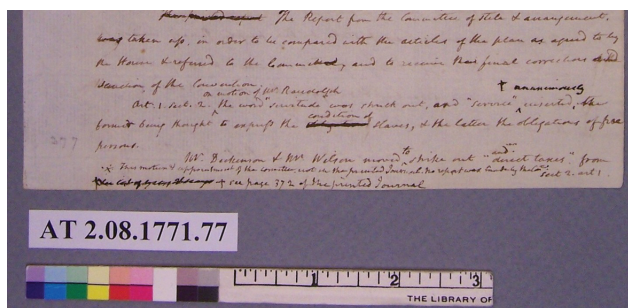 The Report from the Committee of stile & arrangement,
was taken up, in order to be compared with the articles of the plan as agreed to by
the House & referred to the Committee, and to receive the final corrections and
Sanction of the Convention.
on motion of Mr Randolph
† unanimously
Art. 1. sect. 2. the word "servitude was struck out, and "service" inserted, the
condition of
former being thought to express the obligation slaves, & the latter the obligations of free
persons.
277
Mr. Dickenson & Mr. Wilson moved to strike out "and direct taxes" from
sect 2. art 1.
This motion & appointment of the Committee, not in the printed Journal. No report was made by the
† see page 372 of the printed Journal
AT 2.08.1771.77
1 2 3
THE LIBRARY OF